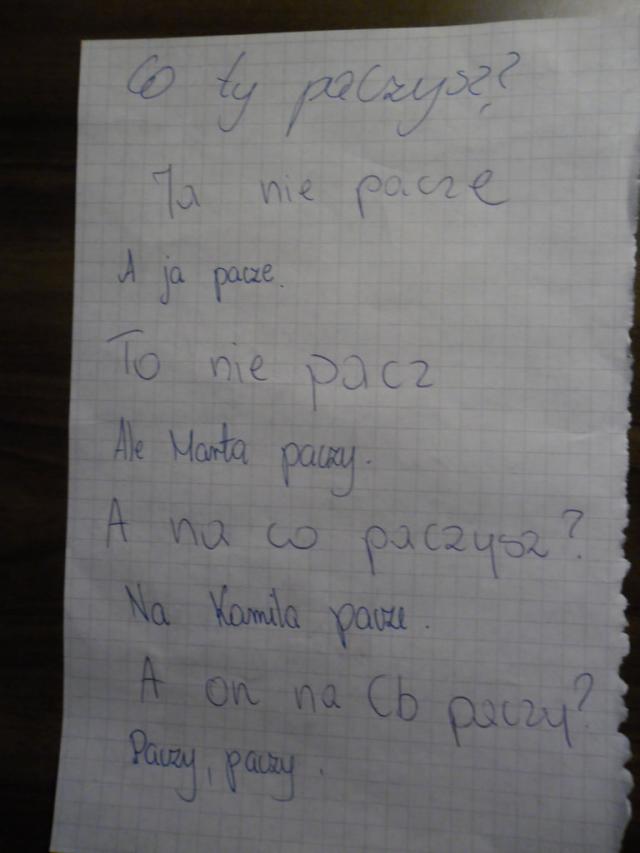 Co ty paczysz?
Ja nie pacze
A ja pacze.
To nie pacz
Ale Marta paczy.
A na co paczysz?
Na Kamila pacze.
A on na Cb paczy?
Paczy, paczy.